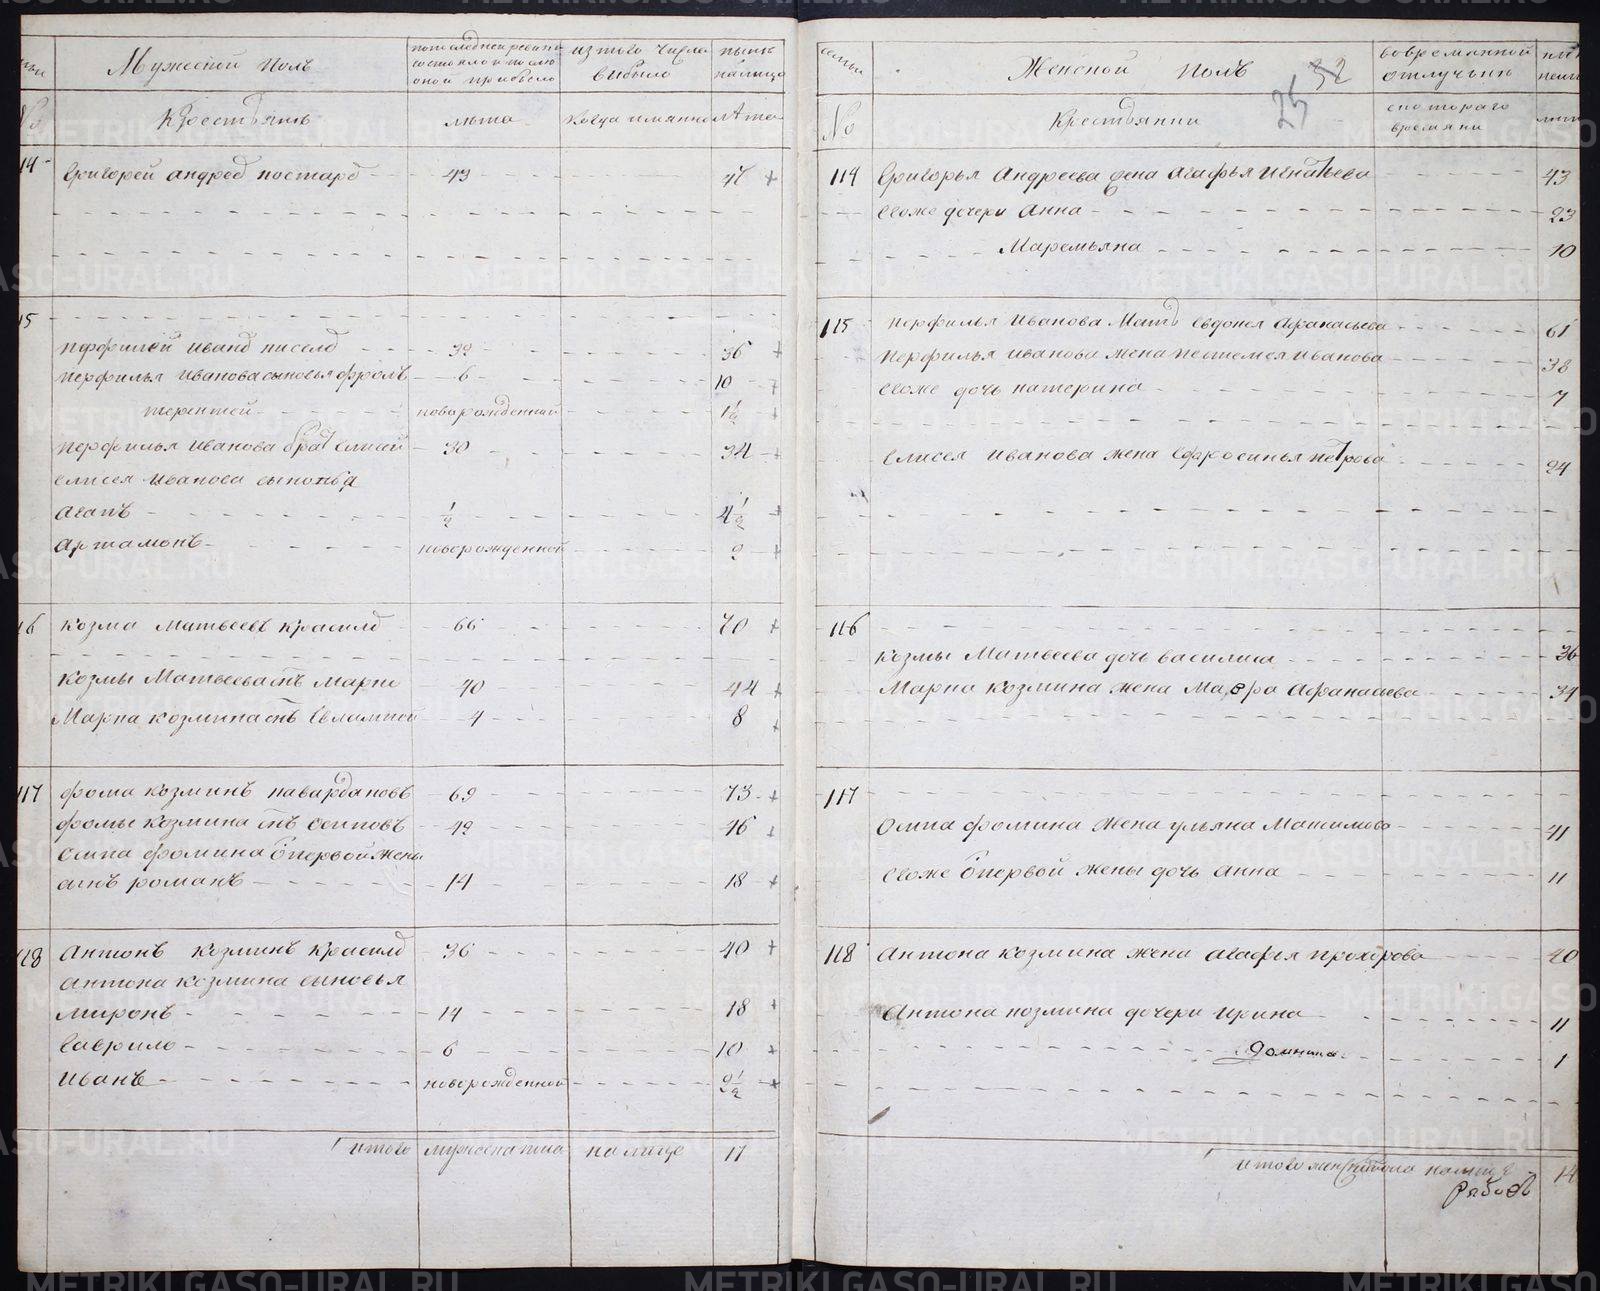 Мужеский полъ
по последней ревизи состояло и после оной прибыло
из того числа выбыло
ныне налицо
№
Крестьянъ
лѣта
Когда имянно
лѣта
14
Григорей Андреев 43 47
15
Перфилей Иванов Киселев 32 36
Перфилья Иванова сыновья Фролъ 6 10
Терентей новорожденной 1½
Перфилья Иванова брат Елисей 30 34
Елисея Иванова сыновья
Агапъ ½ 4½
Артамонъ новорожденной 2
16
Козма Матвеевъ Красилов 66 70
Козмы Матвеева сынъ Марко 40 44
Марка Козмина сынъ Евлампей 4 8
117
Фома Козминъ 69 73
Фомы Козмина сынъ Осиповъ 42 46
Осипа Фомина от первой жены
сынъ Романъ 14 18
118
Антонъ Козминъ Красилов 36 40
Антона Козмина сыновья
Миронъ 14 18
Гаврило 6 10
Иванъ новорожденной 2½
Итого мужеска пола на лице 17
семьи
Женской полъ
25 32
во временной отлучьки
№
Крестьянки
с котораго времяни
114 Григорья Андреева жена Агафья Игнатьева 43
Евоже дочери Анна 23
Маремьяна 10
115 Перфилья Иванова Мать Евдокея Афанасьева 61
Перфилья Иванова жена Иванова 38
Евоже дочь Катерина 7
Елисея Иванова жена Ефросинья Петрова 24
116
Козмы Матвеева дочь Василиса 36
Марка Козмина жена Мавра Афанасьева 34
117
Осипа Фомина жена Ульяна Максимова 41
Евоже от первой жены дочь Анна 11
118 Антона Козмина жена Агафья Прохорова 40
Антона Козмина дочери Ирина 11
Домника 1
Итого женскаго пола налице 14
METRIKI.GASO-URAL.RU